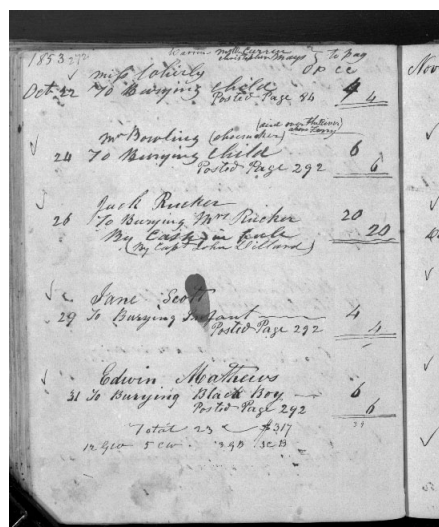 1853 272
Christopher Mays to pay
miss Coberly
Oct 22 To Burying Child 4
Posted Page 84 4
Mr Bowling (Shoemaker) (died over the River above Ferry)
24 To Burying Child 6
Posted Page 292 6
Jack Rucker
26 To Burying Mrs Rucker 20
By Cash in full 20
(By Capt John Dillard)
Jane Scott
29 To Burying Infant 4
Posted Page 292 4
Edwin Mathews
31 To Burying Black Boy 6
Posted Page 292 6
Total 23 $317
5 CW
Nov